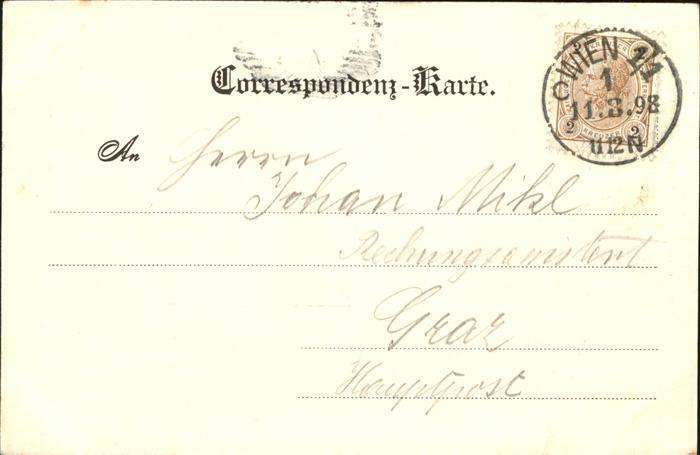 Correspondenz-Karte.
WIEN 1/1
1
11.8.98
11-12N
2 2
KREUZER
2 2
An Herrn
Johan Mikl
Rechungsassistent
Graz
Hauptpost